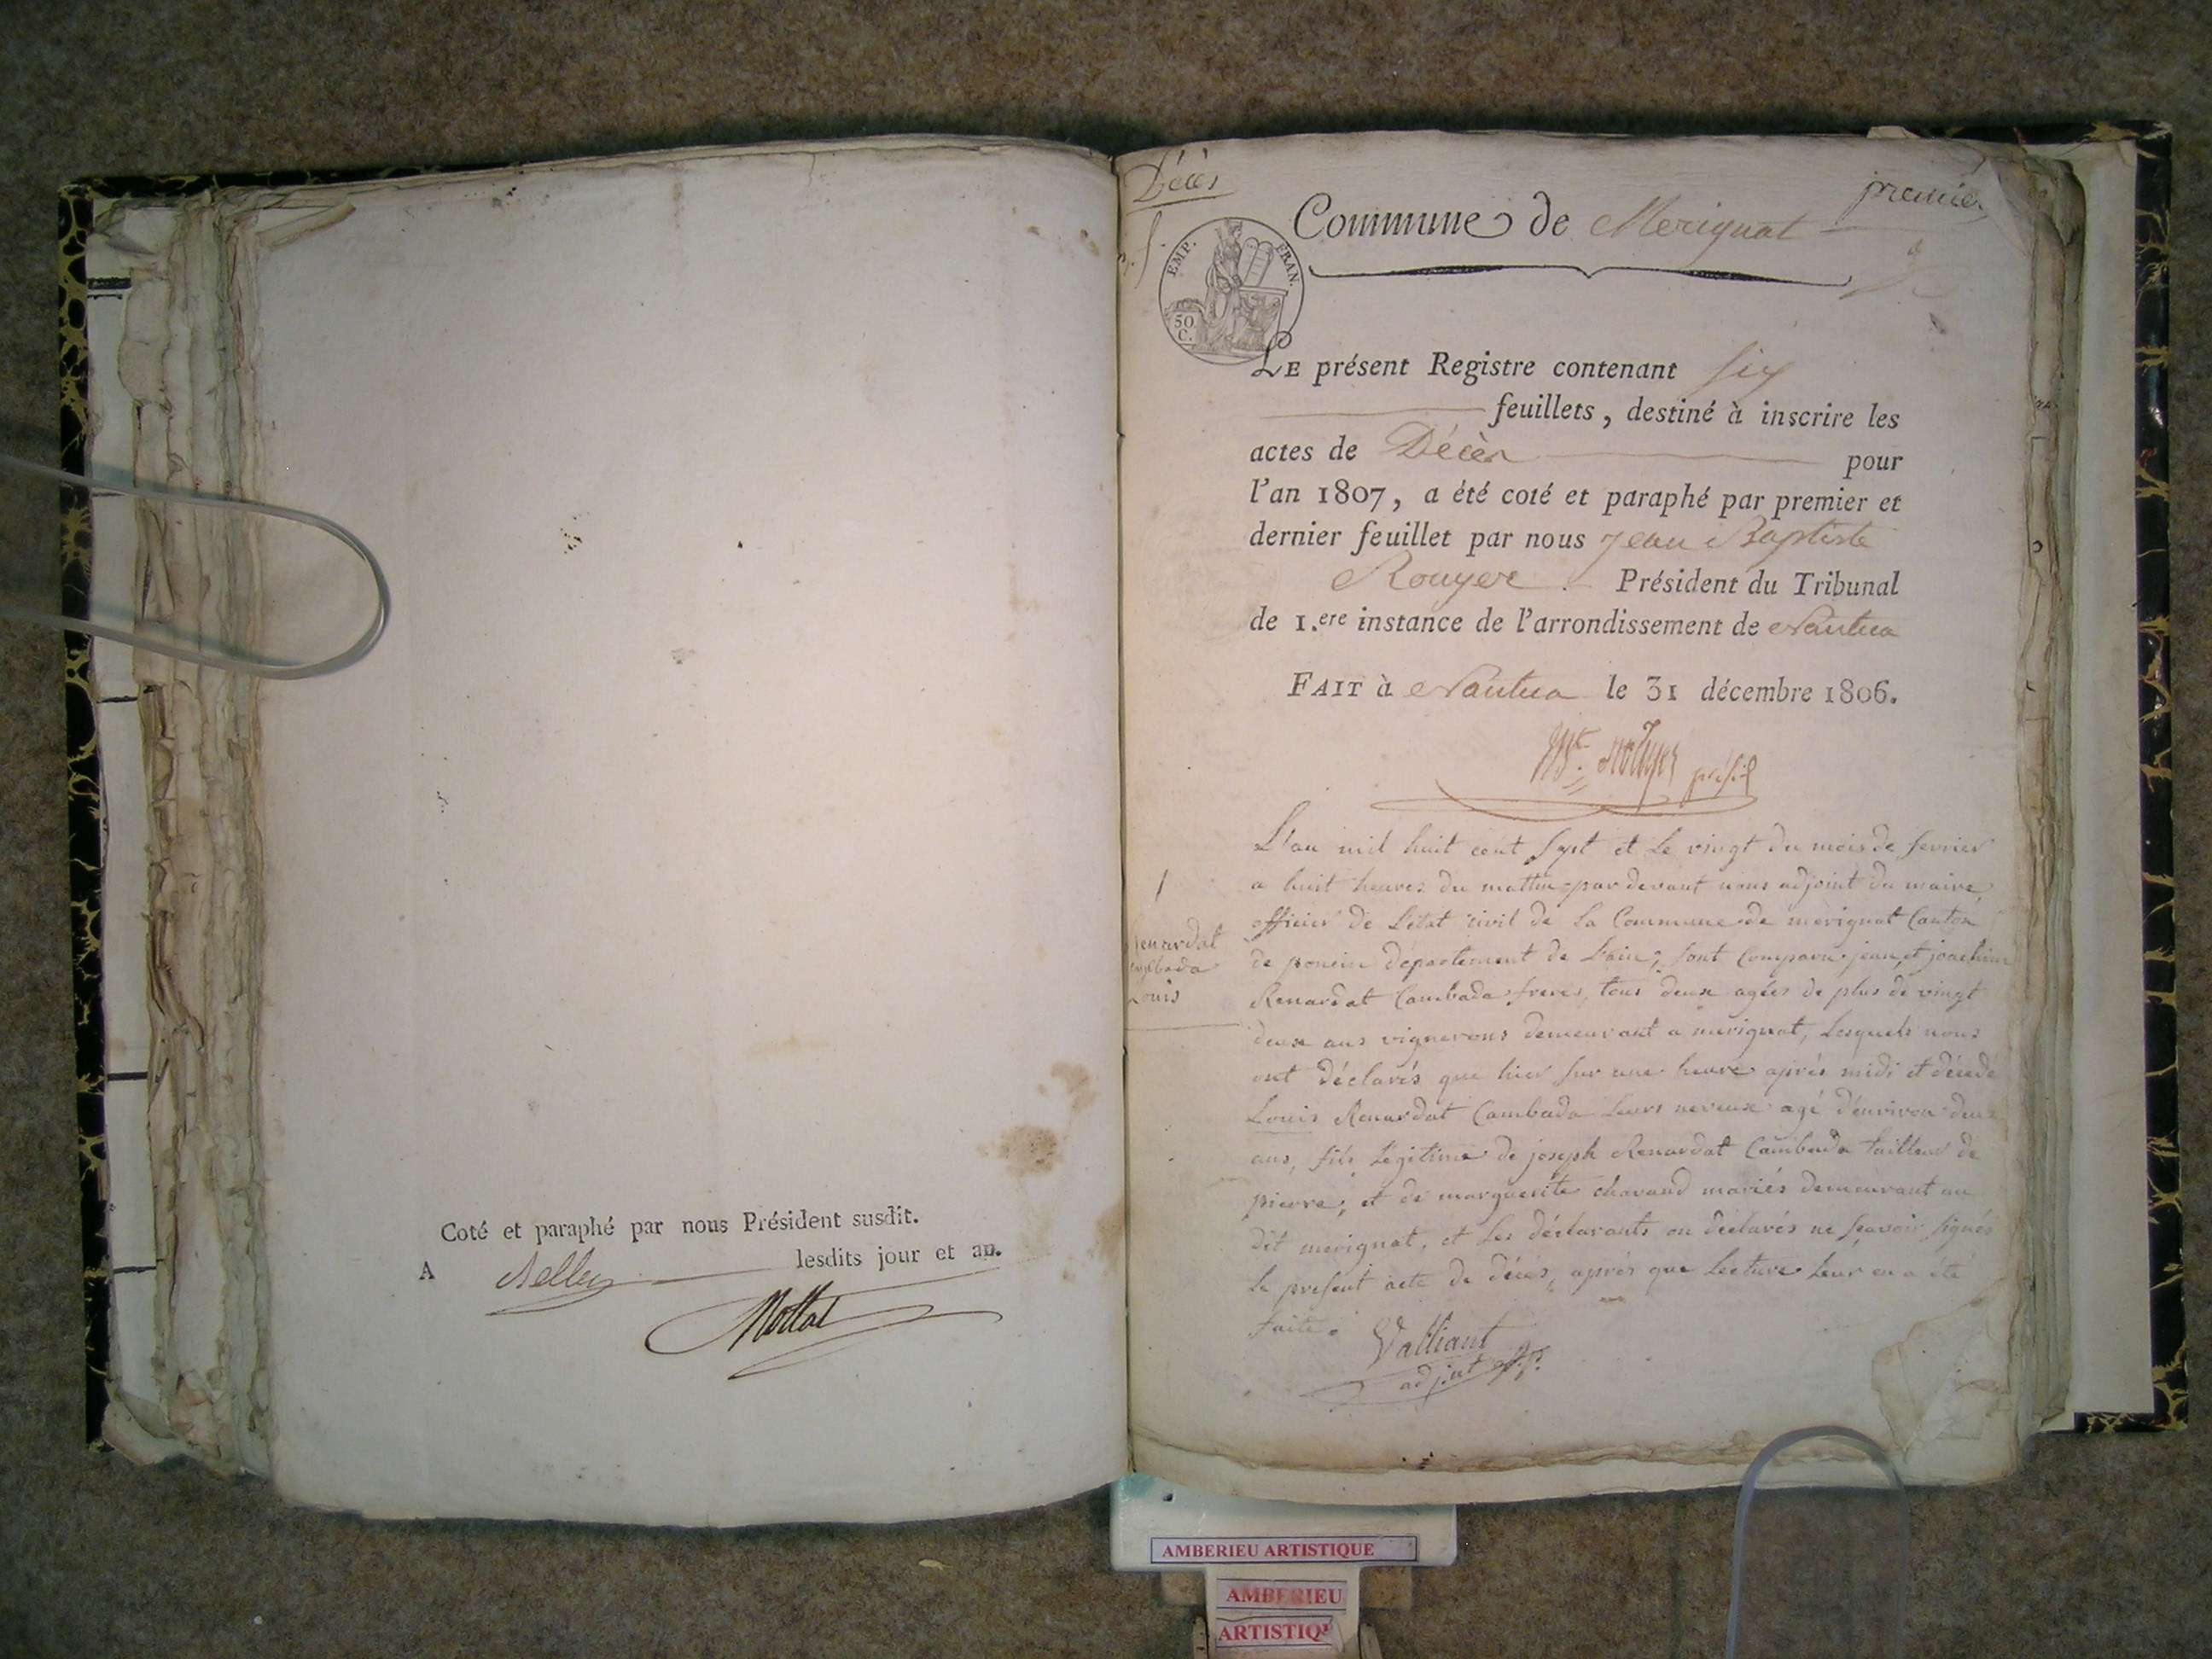 Coté et paraphé par nous Président susdit.
A Belley lesdits jour et an.
Mottat
Décès
premier
Commune de Merignat
EMP. FRAN.
50
C.
LE présent Registre contenant six
feuillets, destiné à inscrire les
actes de Décès pour
l'an 1807, a été coté et paraphé par premier et
dernier feuillet par nous Jean Baptiste
Rouyer Président du Tribunal
de 1.ere instance de l'arrondissement de Nantua
FAIT à Nantua le 31 décembre 1806.
Rouyer présid
1
Renardat
Cambada
Louis
L'an mil huit cent sept et le vingt du mois de fevrier
a huit heures du mattin par devant nous adjoint du maire
officier de L'état civil de La Commune de mérignat Canton
de poncin département de L'ain, sont Comparu jean et joachim
Renardat Cambada freres, tous deux agées de plus de vingt
deux ans vignerons demeurant a merignat, Lesquels nous
ont déclarés que hier sur une heure aprés midi et décedé
Louis Renardat Cambada Leurs neveux agé d'environ deux
ans, fils Légitime de joseph Renardat Cambada tailleur de
pierre, et de marguerite chavand mariés demeurant au
dit merignat, et Les déclarants on déclarés ne sçavoir signés
Le present acte de décès, aprés que Lecture Leur en a été
faite.
Valliant
adjut
AMBERIEU ARTISTIQUE
AMBERIEU
ARTISTIQ